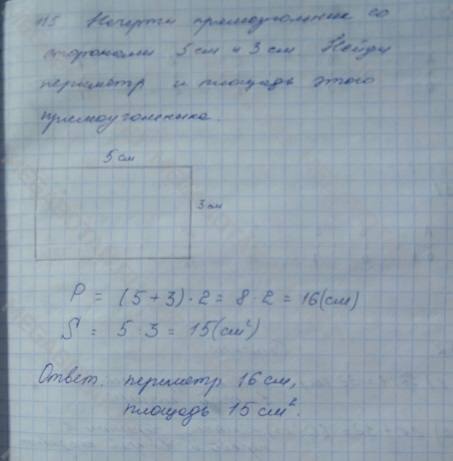 №5 Начерти прямоугольник со
сторонами 5 см и 3 см Найди
периметр и площадь этого
прямоугольника.
5 см
3 см
P = (5+3)·2 = 8·2 = 16(см)
S = 5·3 = 15(см²)
Ответ: периметр 16 см,
площадь 15 см².